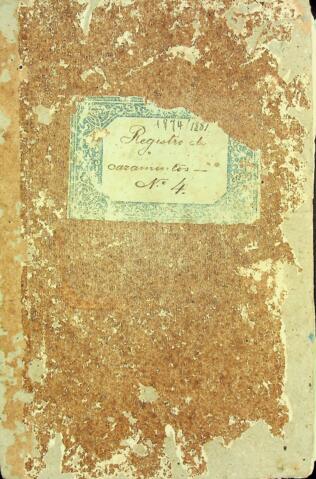 1874/1881
Registro de
casamentos
Nº 4